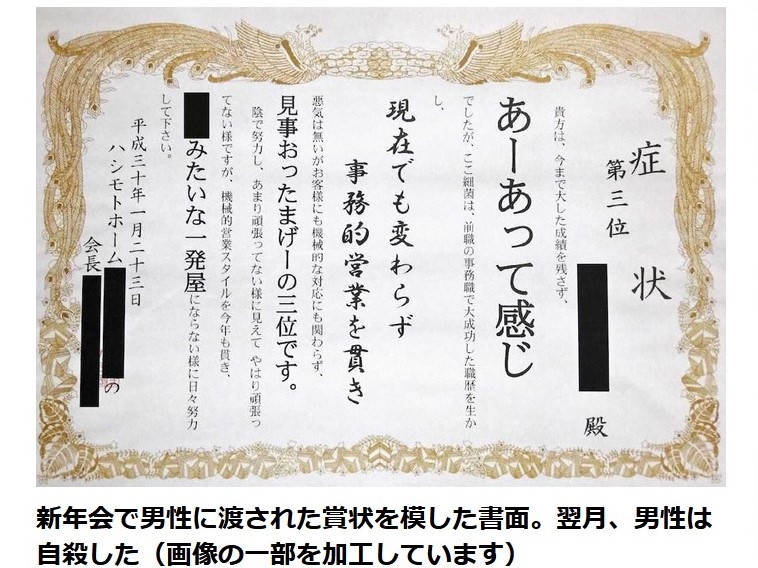 症状
第三位
殿
貴方は、今まで大した成績を残さず、
あーあって感じ
でしたが、ここ細菌は、前職の事務職で大成功した職歴を生か
し、
現在でも変わらず
事務的営業を貫き
悪気は無いがお客様にも機械的な対応にも関わらず、
見事おったまげーの三位です。
陰で努力し、あまり頑張ってない様に見えて やはり頑張っ
てない様ですが、機械的営業スタイルを今年も貫き、
みたいな一発屋にならない様に日々努力
して下さい。
平成三十年一月二十三日
ハシモトホーム
の
会長
新年会で男性に渡された賞状を模した書面。翌月、男性は
自殺した（画像の一部を加工しています）